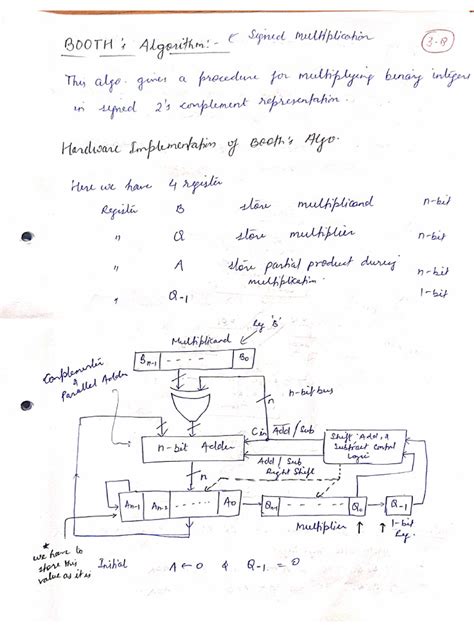 BOOTH's Algorithm:- Signed Multiplication
3-B
This algo. gives a procedure for multiplying binary integers
in signed 2's complement representation.
Hardware Implementation of Booth's Algo.
Here we have 4 register
Register B store multiplicand n-bit
" Q store multiplier n-bit
" A store partial product during multiplication n-bit
" Q-1 1-bit
Reg 'B'
Multiplicand
Bn-1 B0
Complementer
& Parallel Adder
n
n
n-bit bus
Cin Add/Sub
n-bit Adder
Shift, Add, &
Subtract Control
Logic
Add/Sub
Right Shift
n
An-1 An-2 A0 Qn-1 Q0 Q-1
Multiplier
1-bit
Reg.
* we have to
store this
value as it is
Initial A ← 0 & Q-1 = 0